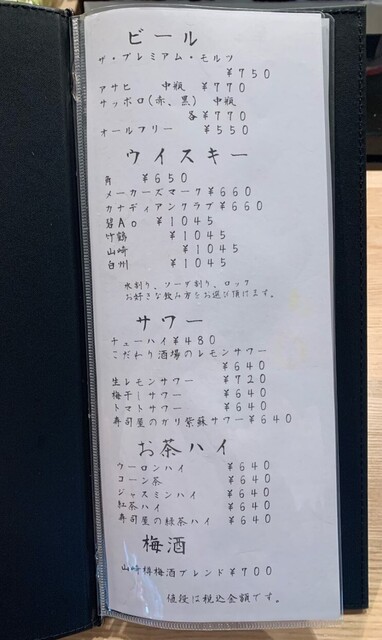 ビール
ザ・プレミアム・モルツ
¥750
アサヒ 中瓶 ¥770
サッポロ(赤、黒) 中瓶
各¥770
オールフリー ¥550
ウイスキー
角 ¥650
メーカーズマーク¥660
カナディアンクラブ¥660
碧Ao ¥1045
竹鶴 ¥1045
山崎 ¥1045
白州 ¥1045
水割り、ソーダ割り、ロック
お好きな飲み方をお選び頂けます。
サワー
チューハイ¥480
こだわり酒場のレモンサワー
¥640
生レモンサワー ¥720
梅干しサワー ¥640
トマトサワー ¥640
寿司屋のガリ紫蘇サワー¥640
お茶ハイ
ウーロンハイ ¥640
コーン茶 ¥640
ジャスミンハイ ¥640
紅茶ハイ ¥640
寿司屋の緑茶ハイ ¥640
梅酒
山崎樽梅酒ブレンド¥700
値段は税込金額です。